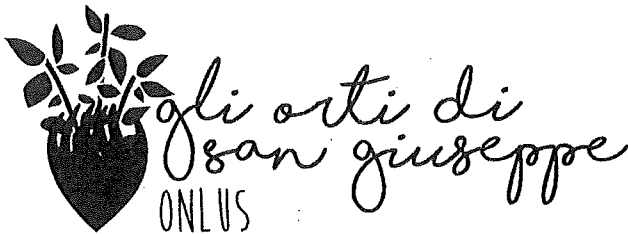 gli orti di
san giuseppe
ONLUS